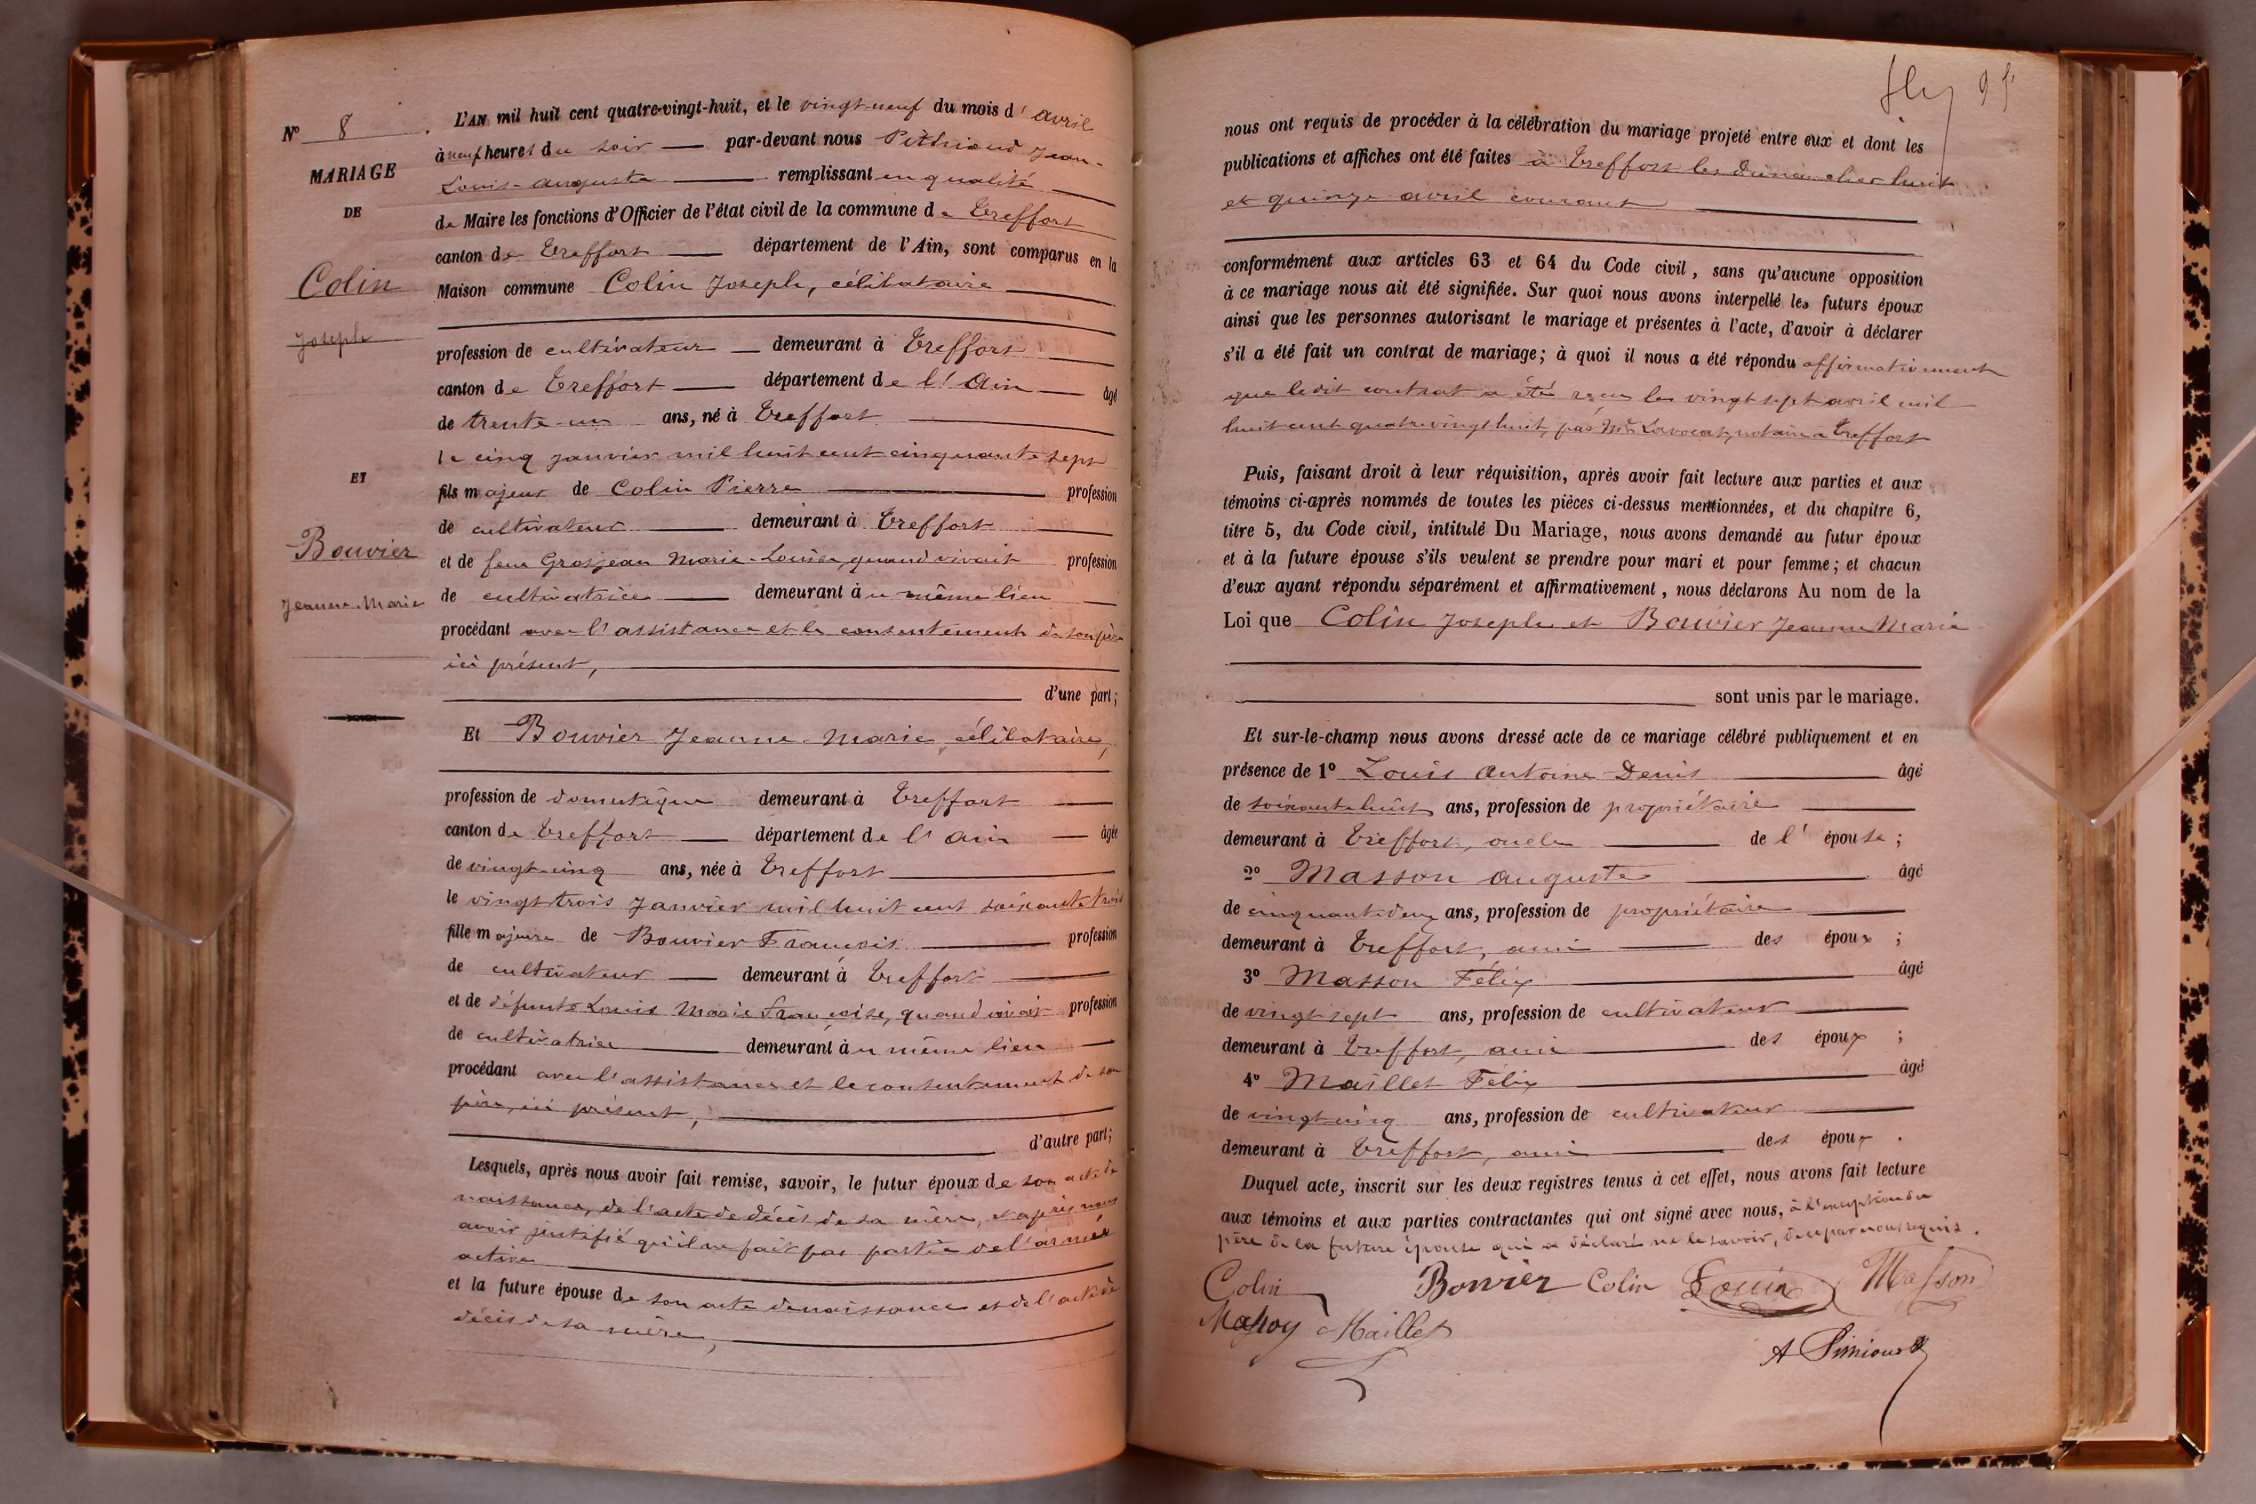 N° 8
MARIAGE
DE
Colin
Joseph
ET
Bouvier
Jeanne-Marie
L'AN mil huit cent quatre-vingt-huit, et le vingt-neuf du mois d'avril
à neuf heures du soir par-devant nous Jean-
Louis-Auguste remplissant en qualité
de Maire les fonctions d'Officier de l'état civil de la commune de Treffort
canton de Treffort département de l'Ain, sont comparus en la
Maison commune Colin Joseph, célibataire
profession de cultivateur demeurant à Treffort
canton de Treffort département de l'Ain âgé
de trente-un ans, né à Treffort
le cinq janvier mil huit cent cinquante sept
fils majeur de Colin Pierre profession
de cultivateur demeurant à Treffort
et de feue Grosjean Marie-Louise, quand vivait profession
de cultivatrice demeurant au même lieu
procédant avec l'assistance et le consentement de son père
ici présent,
d'une part;
Et Bouvier Jeanne-Marie, célibataire,
profession de domestique demeurant à Treffort
canton de Treffort département de l'Ain âgée
de vingt-cinq ans, née à Treffort
le vingt-trois janvier mil huit cent soixante trois
fille majeure de Bouvier François profession
de cultivateur demeurant à Treffort
et de défunte Louis Marie Françoise, quand vivait profession
de cultivatrice demeurant au même lieu
procédant avec l'assistance et le consentement de son
père, ici présent,
d'autre part;
Lesquels, après nous avoir fait remise, savoir, le futur époux de son acte de
naissance, de l'acte de décès de sa mère, et après nous
avoir justifié qu'il ne fait pas partie de l'armée
active
et la future épouse de son acte de naissance et de l'acte de
décès de sa mère,
95
nous ont requis de procéder à la célébration du mariage projeté entre eux et dont les
publications et affiches ont été faites à Treffort les dimanches huit
et quinze avril courant
conformément aux articles 63 et 64 du Code civil, sans qu'aucune opposition
à ce mariage nous ait été signifiée. Sur quoi nous avons interpellé les futurs époux
ainsi que les personnes autorisant le mariage et présentes à l'acte, d'avoir à déclarer
s'il a été fait un contrat de mariage; à quoi il nous a été répondu affirmativement
que ledit contrat a été reçu le vingt sept avril mil
huit cent quatre vingt huit, par Me Lavocat, notaire à Treffort
Puis, faisant droit à leur réquisition, après avoir fait lecture aux parties et aux
témoins ci-après nommés de toutes les pièces ci-dessus mentionnées, et du chapitre 6,
titre 5, du Code civil, intitulé Du Mariage, nous avons demandé au futur époux
et à la future épouse s'ils veulent se prendre pour mari et pour femme; et chacun
d'eux ayant répondu séparément et affirmativement, nous déclarons Au nom de la
Loi que Colin Joseph et Bouvier Jeanne Marie
sont unis par le mariage.
Et sur-le-champ nous avons dressé acte de ce mariage célébré publiquement et en
présence de 1° Louis Antoine Denis âgé
de soixante huit ans, profession de propriétaire
demeurant à Treffort, oncle de l'épouse;
2° Masson Auguste âgé
de cinquante-deux ans, profession de propriétaire
demeurant à Treffort, ami des époux;
3° Masson Félix âgé
de vingt sept ans, profession de cultivateur
demeurant à Treffort, ami des époux;
4° Maillet Félix âgé
de vingt cinq ans, profession de cultivateur
demeurant à Treffort, ami des époux.
Duquel acte, inscrit sur les deux registres tenus à cet effet, nous avons fait lecture
aux témoins et aux parties contractantes qui ont signé avec nous, à l'exception du
père de la future épouse qui a déclaré ne le savoir, de ce par nous requis.
Colin Bouvier Colin Louis Masson
Maillet